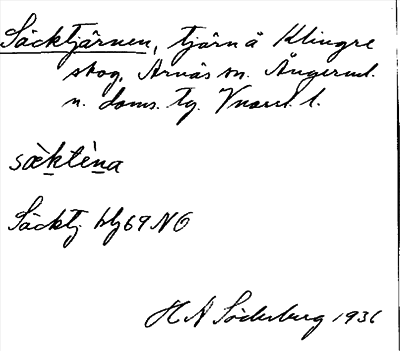 Säcktjärnen, tjärn å Klingre
skog, Arnäs sn. Ångerml.
n. doms. tg. Vnorrl. l.
sæ̀ktèṇa
Säcktj. blz 69 NO
H A Söderberg 1936